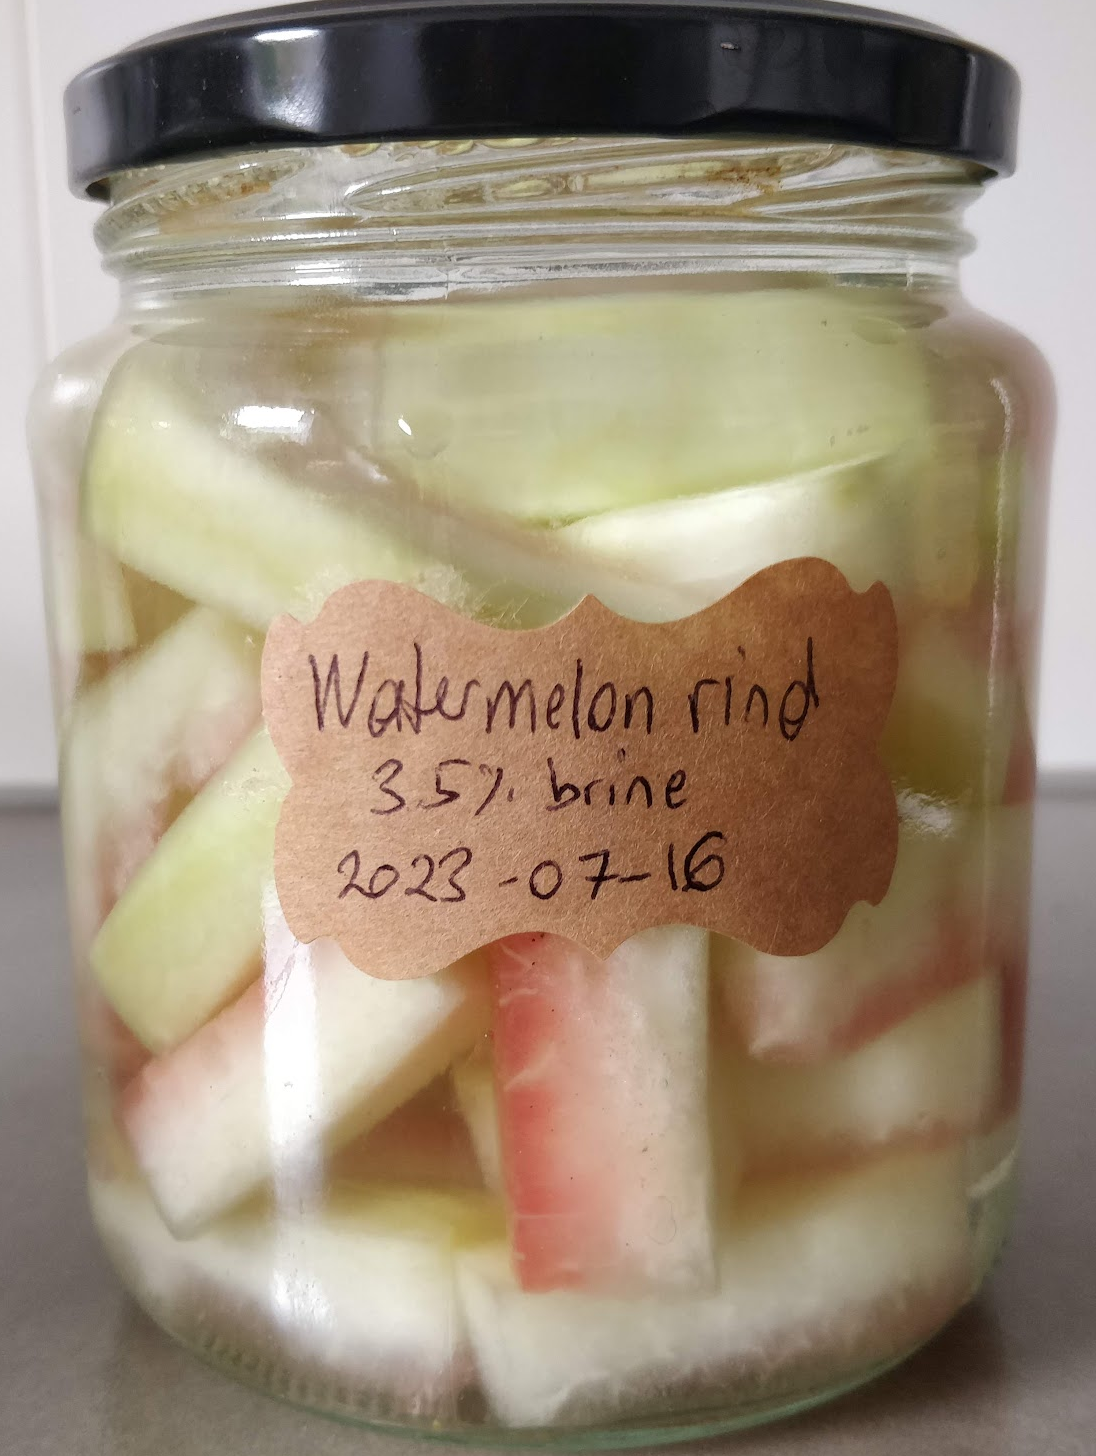 Watermelon rind
3.5% brine
2023-07-16